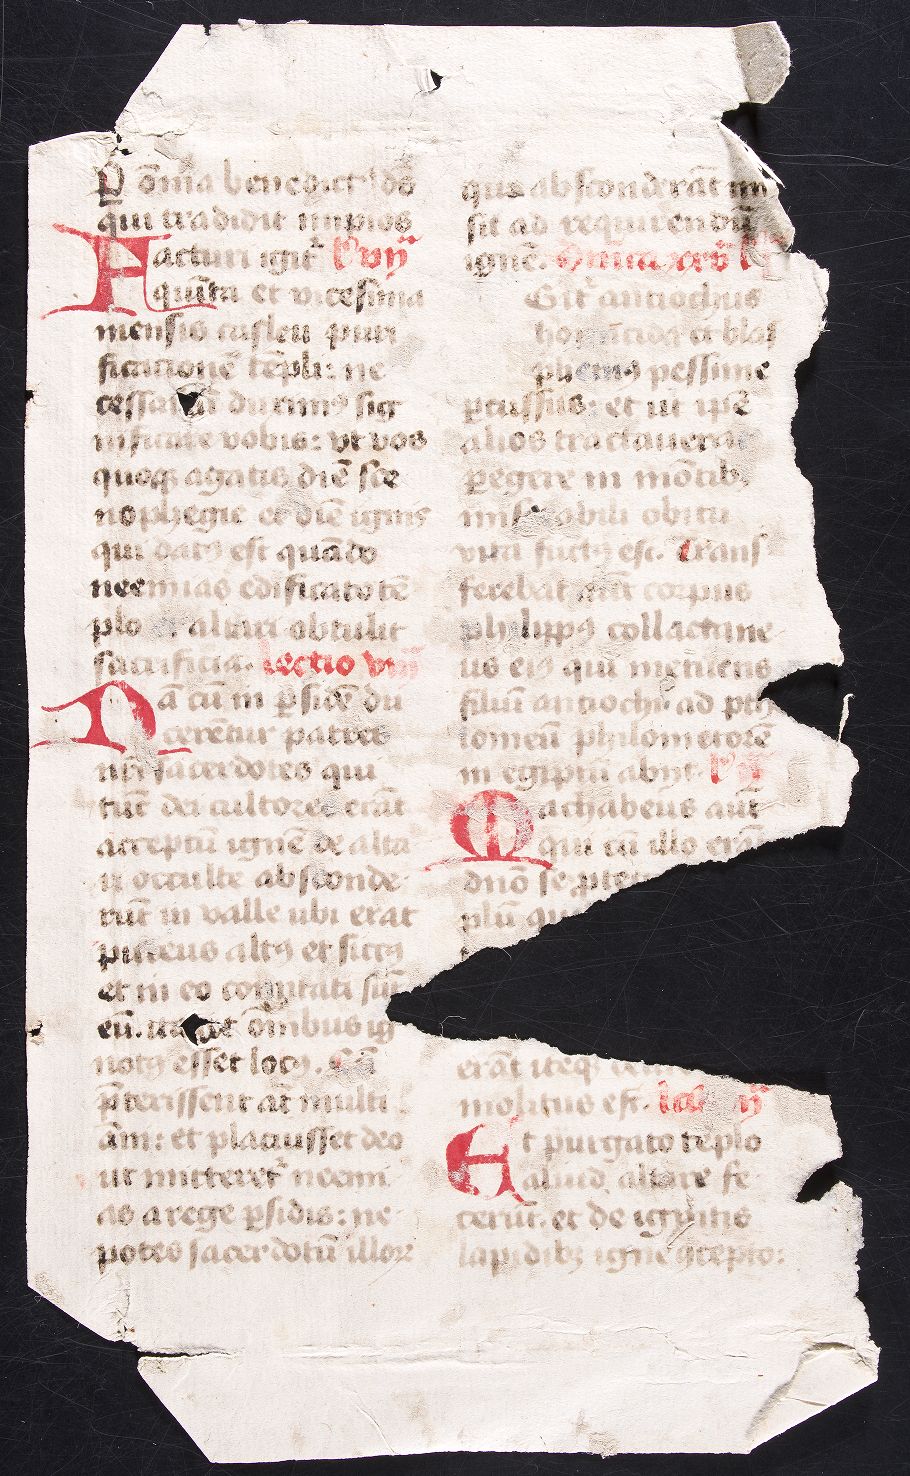 P oma benedict' ds
qui tradidit impios
Facturi igit' l'o vij
quīta et vicesima
mensis casleu puri
ficationē tēpli: ne
cessariū duximꝰ sig
nificare vobis: vt vos
quoqꝫ agatis diē sce
nophegie et diē ignis
qui datꝰ est quādo
neemias edificato tē
plo et altari obtulit
sacrificia. Lectio viij
Nā cū in ꝑsidē du
cerentur patres
nr̄i sacerdotes qui
tūc dei cultores erāt
acceptū ignē de alta
ri occulte absconde
rūt in valle ubi erat
puteus altꝰ et siccꝰ
et in eo cōtutati sūt
eū. ita ut om̄ibus ig
notꝰ esset locꝰ. Cū
p̄terissent aūt multi
āni: et placuisset deo
ut mitteret' neemi
as a rege ꝑsidis: ne
potes sacerdotū illoꝝ
qui absconderāt mi
sit ad requirendū
ignē. Dnica
Git' antiochus
homicida et blas
phemꝰ pessime
ꝑcussus: et ut ipē
alios tractauerat
ꝑegere in mōtibꝫ
miserabili obitu
vita fūctꝰ est. Trans
ferebat aūt corpus
philippꝰ collactane
us eiꝰ qui metuens
filiū antiochi ad pto
lomeū philometorē
in egiptū abijt.
Machabeus aūt
qui cū illo erāt
dn̄o se ꝓtegente
plū
erāt itēqꝫ
molitus est.
Et purgato tēplo
aliud altare fe
cerūt. et de ignitis
lapidibꝫ igne ꝯcepto: